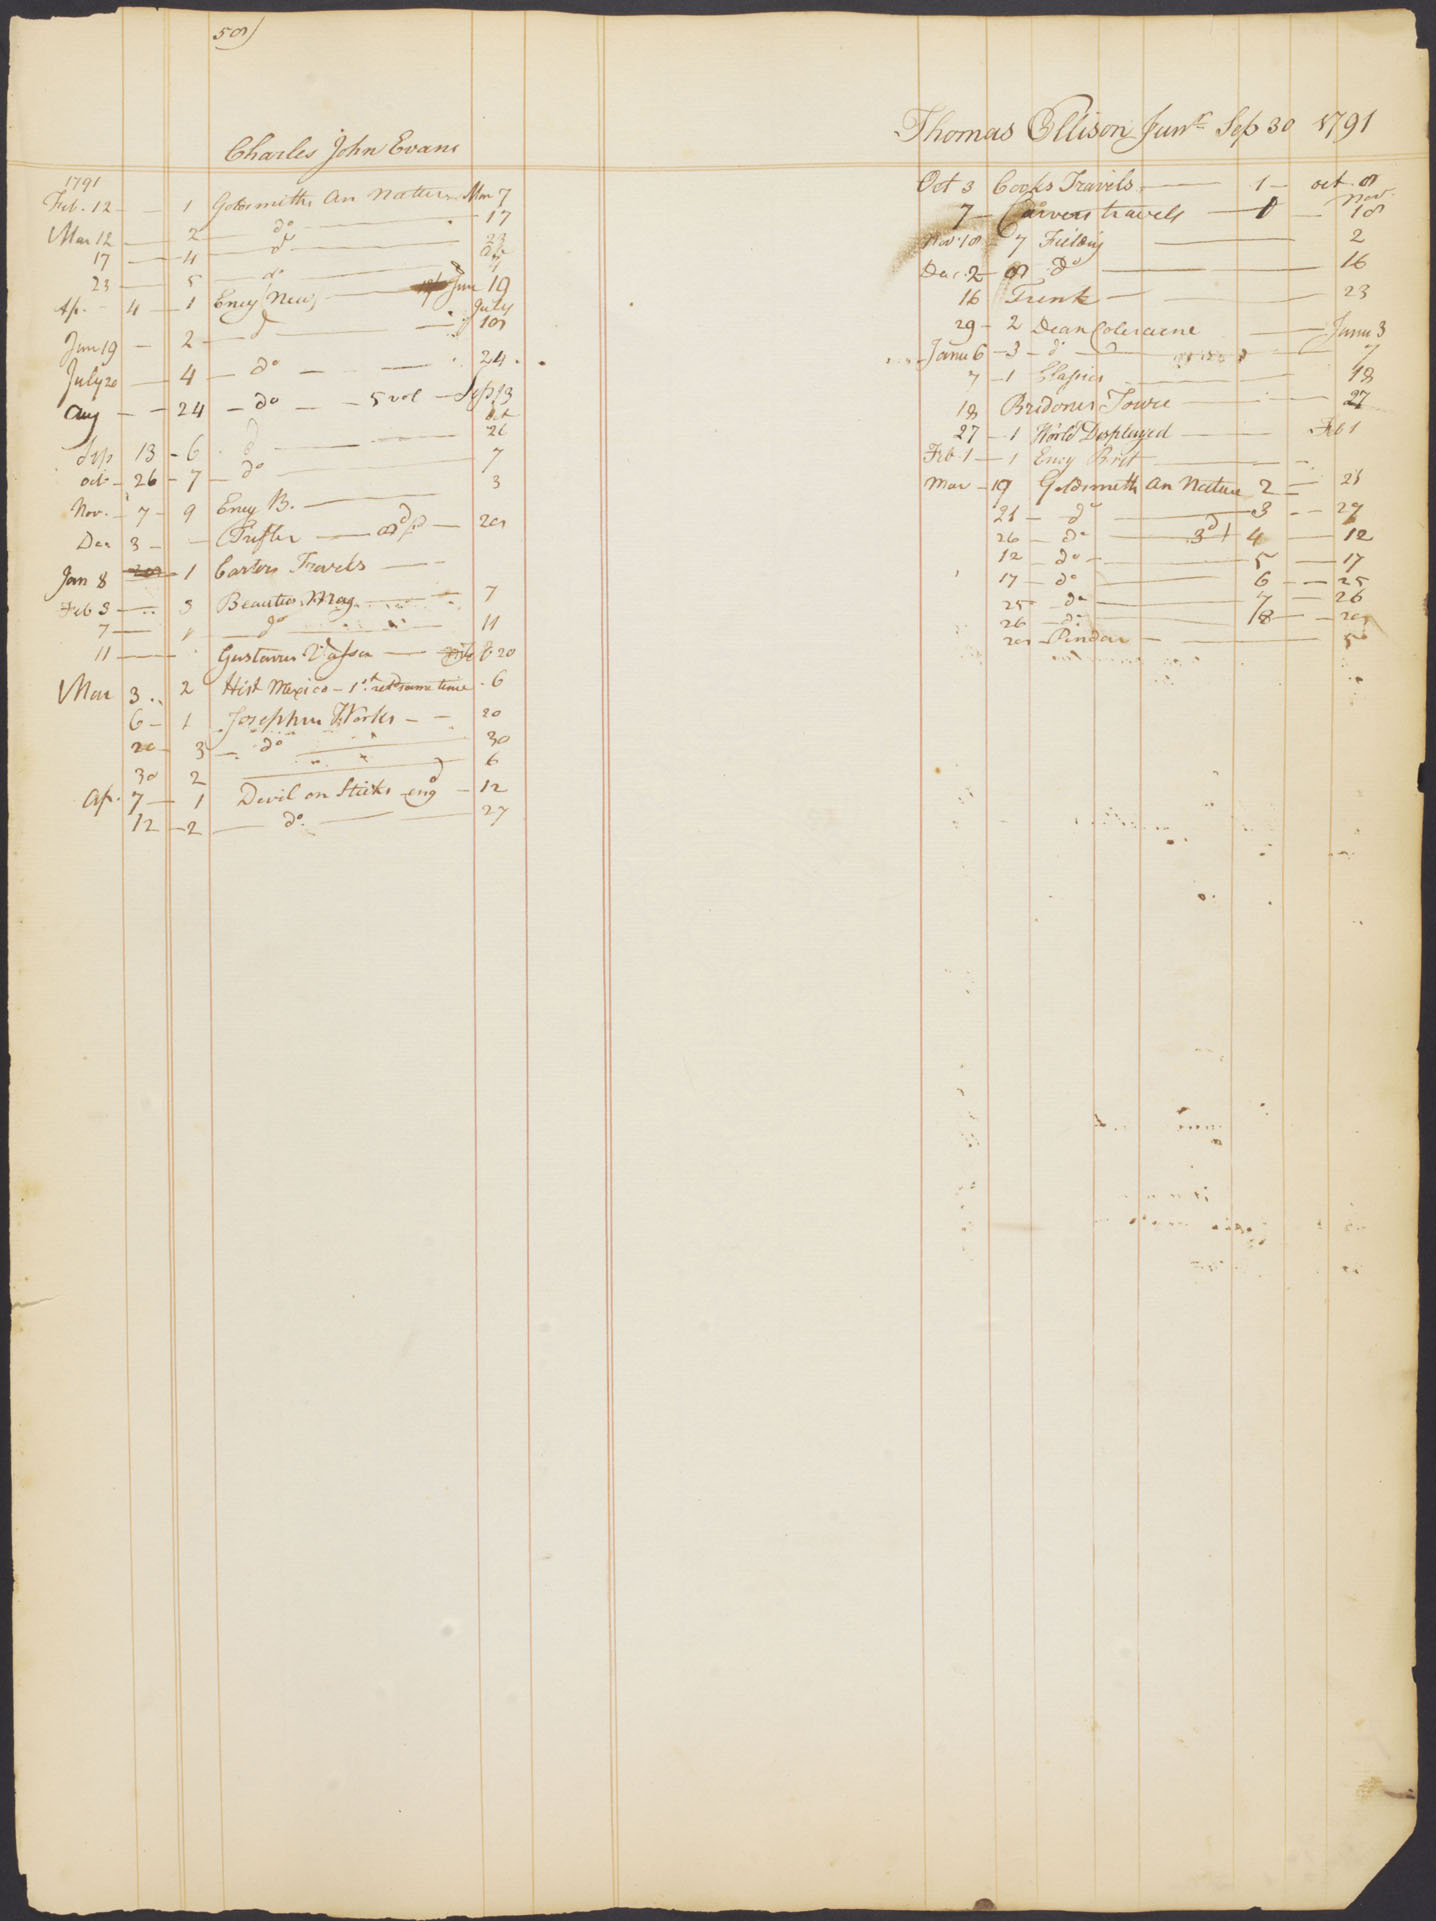 58)
Charles John Evans
1791
Feb. 12 — — 1 Goldsmiths An Nature Mar 7
Mar 12 — 2 — do — 17
17 — 4 — do — 23
Ap
23 — 5 — do — 4
Ap. — 4 — 1 Ency New — June 19
July
Jun 19 — 2 — do — 18
July 20 — 4 — do — — 24
Aug — — 24 — do — — 5 vol — Sep 13
Oct
Sep 13 — 6 do — 26
Oct — 26 — 7 — do — 7
Nov. — 7 — 9 Ency B. — 3
Dec 3 — — Trifler — 28
Jan 8 — 1 Carters Travels — —
Feb 3 — 3 Beauties Mag — 7
7 — 1 — do — 11
11 — Gustavus Vassa — Feb 20
Mar 3 .. 2 Hist Mexico — 1st retd same time . 6
6 — 1 Josephus Works — — 20
20 — 3 — do — 30
30 2 — 6
Ap. 7 — 1 Devil on Sticks engd — 12
12 — 2 — do. — 27
Thomas Ellison Junr Sep 30 1791
Oct 3 Cooks Travils — 1 — oct. 8
Nov.
7 — Carvers travels — 1 — 18
Nov. 18 — 7 Fielding — 2
Dec. 2 — 8 do — 16
16 Trenk — 23
29 — 2 Dean Coleraine — Janu 3
Janu 6 — 3 — do — 7
7 — 1 Classics — 18
18 Bridones Towre — 27
27 — 1 World Displayed — Feb 1
Feb. 1 — 1 Ency Brit — —
Mar — 19 Goldsmith An Nature 2 — 21
21 — do — 3 — — 29
26 — do — 4 — 12
12 — do — 5 — 17
17 — do — 6 — — 25
25 do — 7 — 26
26 — do — 8 — — 28
28 — Pindar — 5